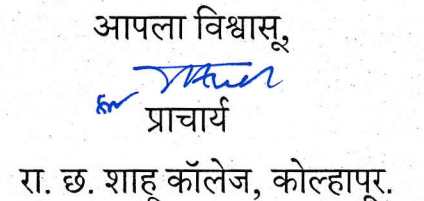 आपला विश्वासू,
प्राचार्य
रा. छ. शाहू कॉलेज, कोल्हापूर.